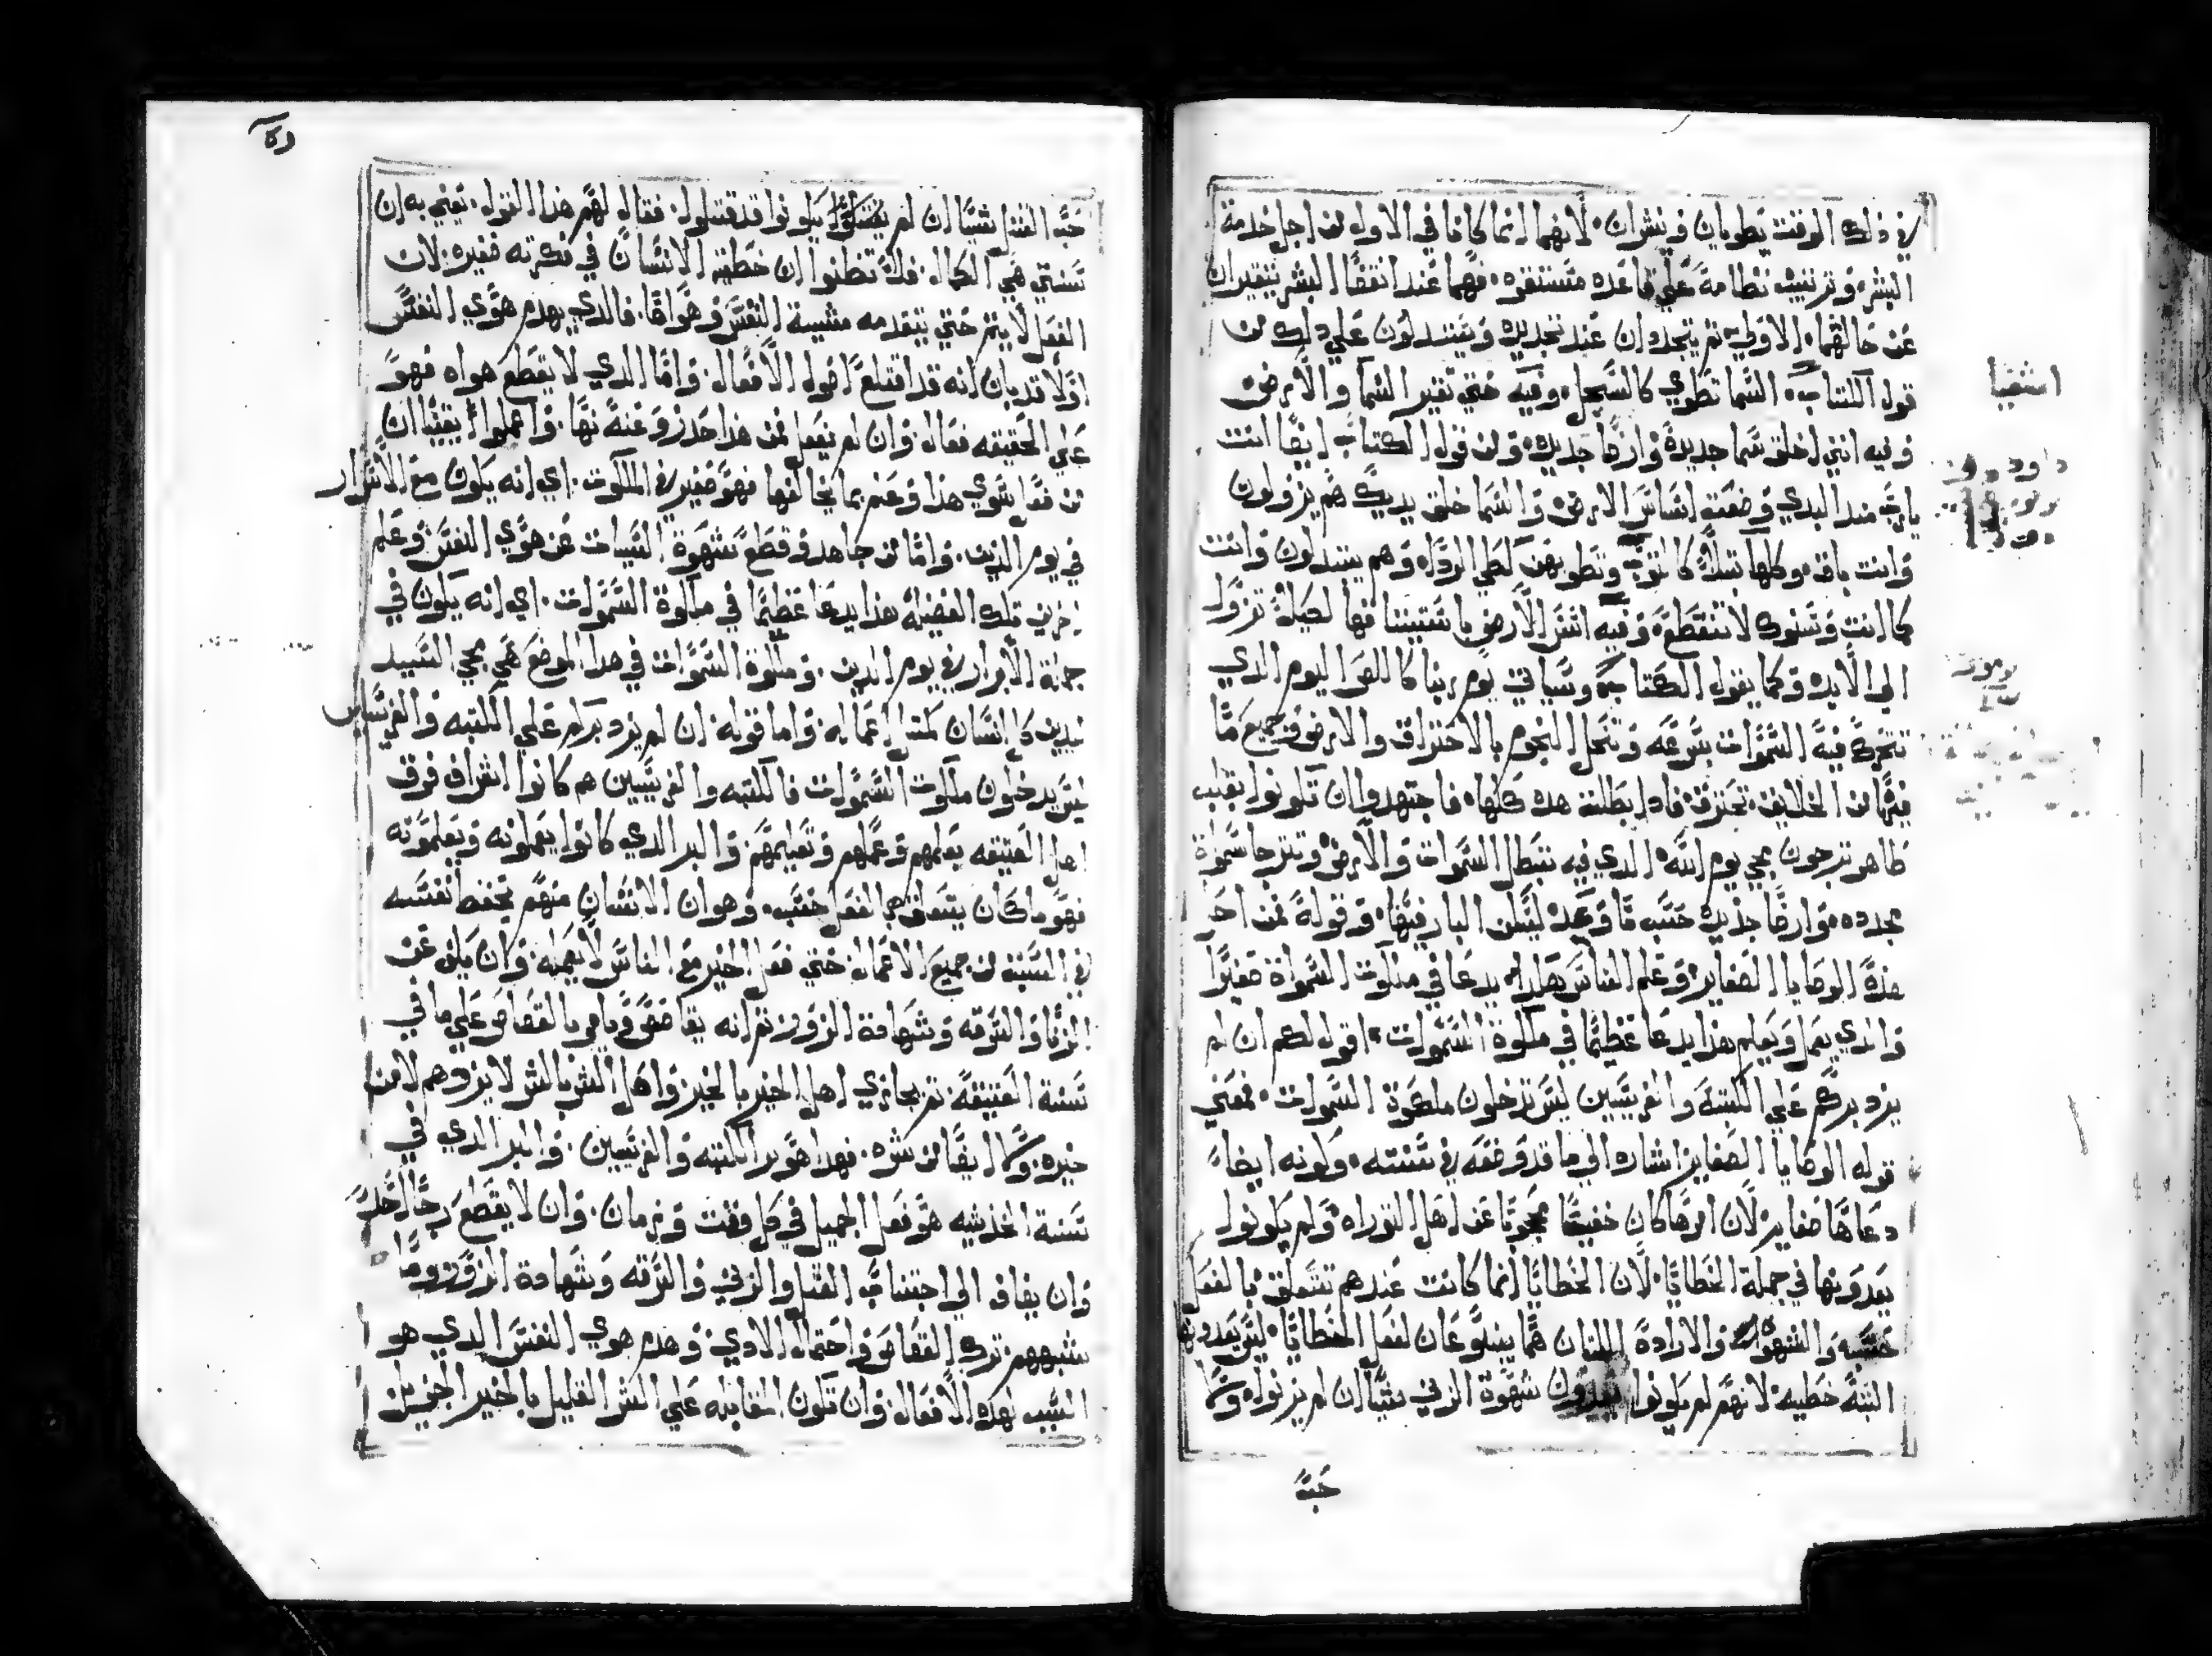 في ذلك الوقت يطويان وينشران. لانهما انما كانا في الاول من اجل خدمة
البشر، وترتيب نظامه علي قاعده مستقره. فهما عند انقضا البشر يتغيران
عن حالهما الاولي ثم يتجددان عند تجديده ويستدلون علي ذلك من
قول الكتاب. السما تطوي كالسجل. وفيه حتي تغير السما والارض
وفيه انني اخلق سما جديدة وارضا جديده. ومن قول الكتاب ايضا انت
يارب منذ البدي وضعت اساس الارض والسما خلق يديك هم يزولون
وانت باق. وكلها تبلا كالثوب وتطويهن كطي الردا. وهم يبتدلون وانت
كما انت وسنوك لا تنقطع. وفيه اسس الارض فها لكيلا تزول
الي الابد. وكما يقول الكتاب وسياتي يوم ربنا كاللص اليوم الدي
تتحرك فيه السموات بسرعه وتنحل النجوم بالاحتراق والارض وجميع ما
فيها من الخلايق تحترق. فادا بطلت هده كلها. فاجتهدوا ان تكونوا بقلب
طاهر ترجون مجي يوم الله الدي فيه تبطل السموات والارض وتترجا سمواة
مجدده وارضا جديده حسب ما وعد ليسكن البار فيها. وقوله فمن احل
هذه الوصايا الصغاير وعلم الناس هكدا يدعا في ملكوت السمواة صغيرا
والدي يعمل ويعلم هذا يدعا عظيما في ملكوة السموات. اقول لكم ان لم
يزد بركم علي الكتبة والفريسيين ليس تدخلون ملكوة السموات. فمعني
قوله الوصايا الصغاير اشاره الي ما قد وضعه في سنته. وكونه ايضا
دعاها صغاير لان امرها كان خفيفا عند اهل التوراه ولم يكونوا
يعدونها في جملة الخطايا. لان الخطايا انما كانت عندهم تتعلق بالفعل
حسب والشهوة والارادة اللتان هما ينبوعان لفعل الخطايا. ليس يعدونها
البتة خطيه لانهم لم يكونوا يعدون شهوة الزني شيا ان لم يزنوا. وكما
حبة
اشعيا
داود
حبة القتل شيا ان لم يقتلوا يكونوا قد قتلوا. فقال لهم هذا القول. يعني به ان
سنتي هي الكمال. فلا تظنوا ان خطية الانسان في فكرته صغيره. لان
الفعل لا يتم حتي تتقدمه مشيية النفس وهواها. فالدي يهدم هوي النفس
اولا قد بان انه قد اقتلع اصول الافعال. واما الدي لا يقطع هواه فهو
علي الحقيقه فعال وان لم يفعل فمن هذا حذر وعنه نها. واعلموا يقينا ان
من فعل سوي هذا وعلم بما يخالفها فهو صغير في الملكوت. اي انه يكون مع الاشرار
في يوم الدين. واما من جاهد وقطع شهوة السيات عن هوي النفس وعلم
اخرين تلك الفضيله هذا يدعا عظيما في ملكوة السموات. اي انه يكون في
جملة الابرار في يوم الدين. وملكوة السموات في هدا الموضع هي مجي السيد
ليدين كل انسان كمثل اعماله. واما قوله ان لم يزد بركم علي الكتبه والفريسيين
ليس يدخلون ملكوت السموات فالكتبه والفريسيين هم كانوا اشراف فوق
اهل العتيقه بعلمهم وعملهم وتعليمهم. والبر الدي كانوا يعملونه ويعلمونه
فهو ما كان يتعلق بالفعل حسب. وهو ان الانسان منهم يحفظ نفسه
في السبت من جميع الاعمال حتي فعل الخير مع الناس لا يعمله. وان يكف عن
الزنا والسرقه وشهادة الزور. ثم انه يقاصص ويامر بالقصاص علي ما في
سنة العتيقة. ثم يجازي اهل الخير بالخير واهل الشر بالشر لا يزدهم لا من
خيره. ولا ايضا من شره. فهدا هو بر الكتبه والفريسيين. والبر الدي في
سنة الحديثه هو فعل الجميل في كل وقت وزمان. وان لا يقطع
وان يضاف الي اجتناب القتل والزني والسرقه وشهادة الزور وما
يشبههم. ترك القصاص واحتمال الادي. وهدم هوي النفس الدي هو
السبب لهده الافعال. وان تكون المقابله علي الشر القليل بالخير الجزيل